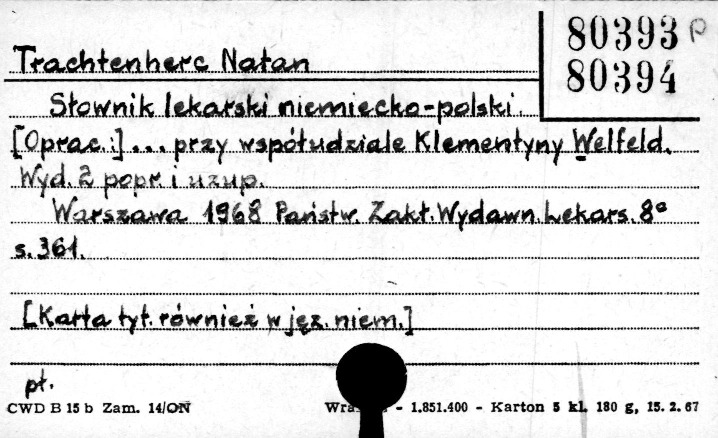 80393 p
80394
Trachtenherc Natan
Słownik lekarski niemiecko-polski.
[Oprac.:] ... przy współudziale Klementyny Welfeld.
Wyd. 2 popr. i uzup.
Warszawa 1968 Państw. Zakł. Wydawn. Lekars. 8°
s. 361.
[Karta tyt. również w jęz. niem.]
pt.
CWD B 15 b Zam. 14/ON - 1.851.400 - Karton 5 kl. 180 g, 15. 2. 67